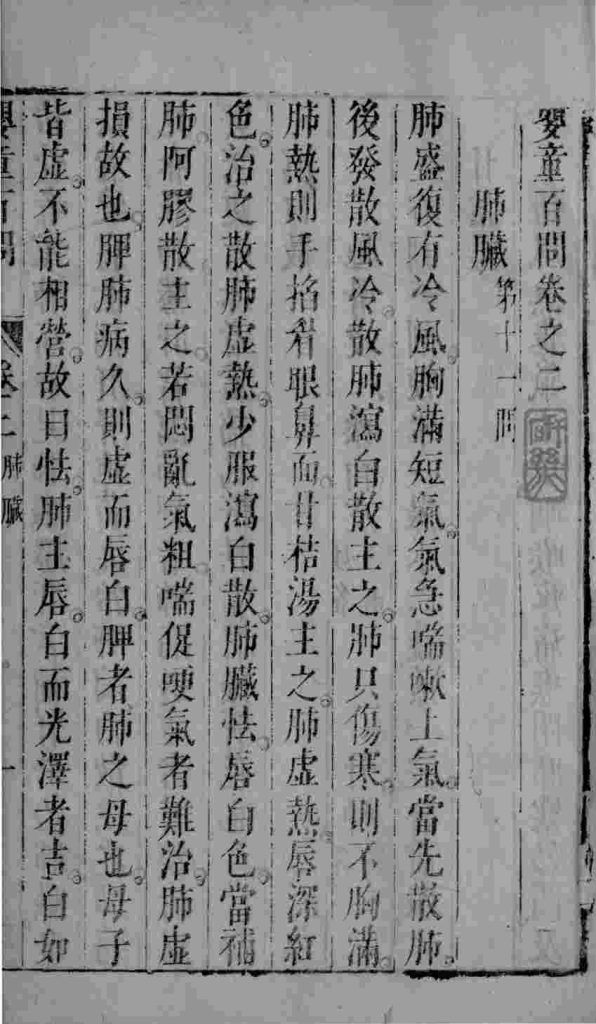 嬰童百問卷之二
肺臟第十一問
肺盛復有冷風胸滿短氣氣急喘嗽上氣當先散肺
後發散風冷散肺瀉白散主之肺只傷寒則不胸滿
肺熱則手掐眉眼鼻面甘桔湯主之肺虛熱唇深紅
色治之散肺虛熱少服瀉白散肺臟怯唇白色當補
肺阿膠散主之若悶亂氣粗喘促哽氣者難治肺虛
損故也脾肺病久則虛而唇白脾者肺之母也母子
皆虛不能相營故曰怯肺主唇白而光澤者吉白如
嬰童百問 卷二 肺臟 一